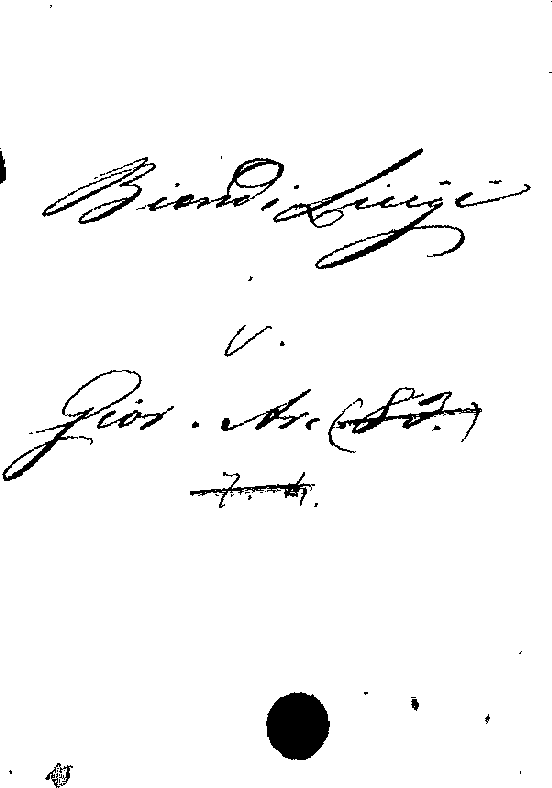 Biondi Luigi
V.
Gior. Arc (83.)
7. 4.